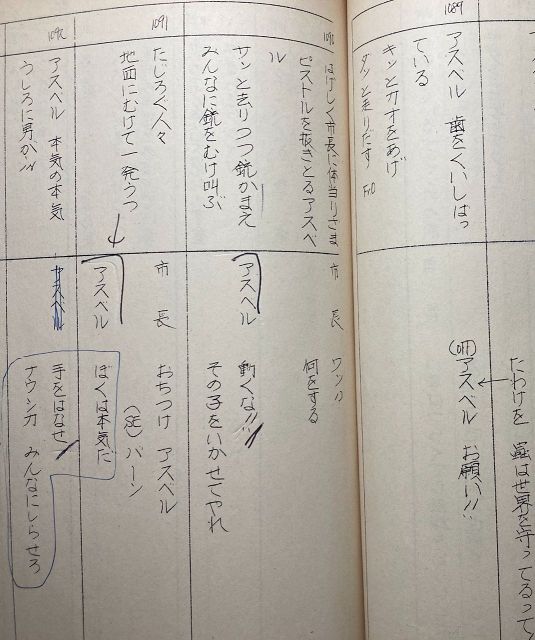 1089
アスベル 歯をくいしばっ
ている
キッとカオをあげ
ダッと走りだす Fr.O
たわけを 蟲は世界を守ってるって
(off)アスベル お願い!!
1090
はげしく市長に体当りざま
ピストルを抜きとるアスベ
ル
サッと去りつつ銃かまえ
みんなに銃をむけ叫ぶ
市 長
ワッ!!
何をする
アスベル
動くな!!
その子をいかせてやれ
1091
たじろぐ人々
地面にむけて一発うつ
市 長
おちつけ アスベル
(SE) バーン
アスベル
ぼくは本気だ
1092
アスベル 本気の本気
うしろに男が!!
アスベル
手をはなせ
ナウシカ みんなにしらせろ